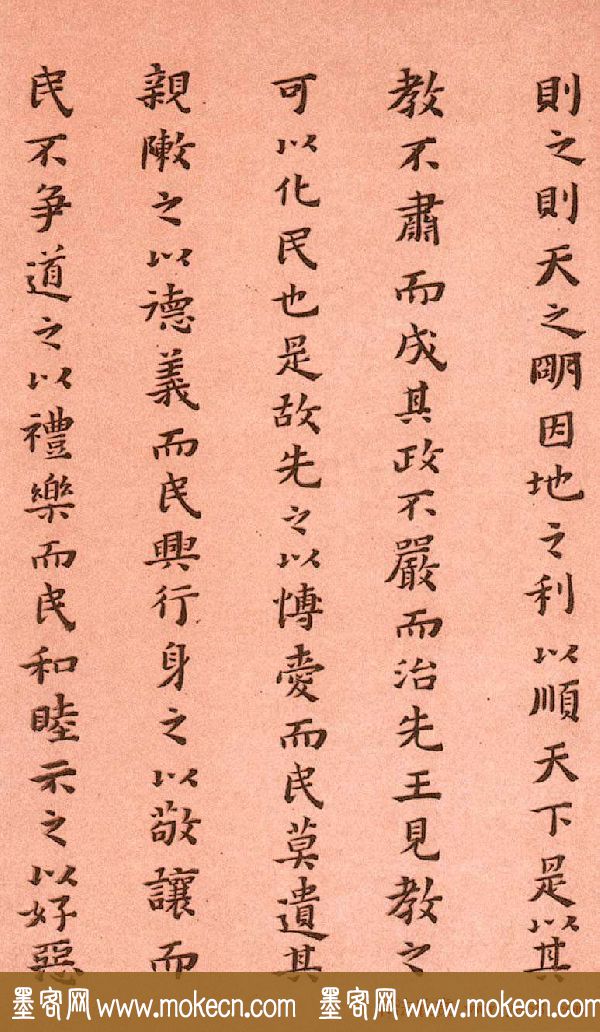 則之則天之眀因地之利以順天下是以其
教不肅而成其政不嚴而治先王見教之
可以化民也是故先之以愽愛而民莫遺其
親敶之以德義而民興行身之以敬讓而
民不爭道之以禮樂而民和睦示之以好惡
墨客网 www.mokecn.com 墨客网 www.mokecn.com